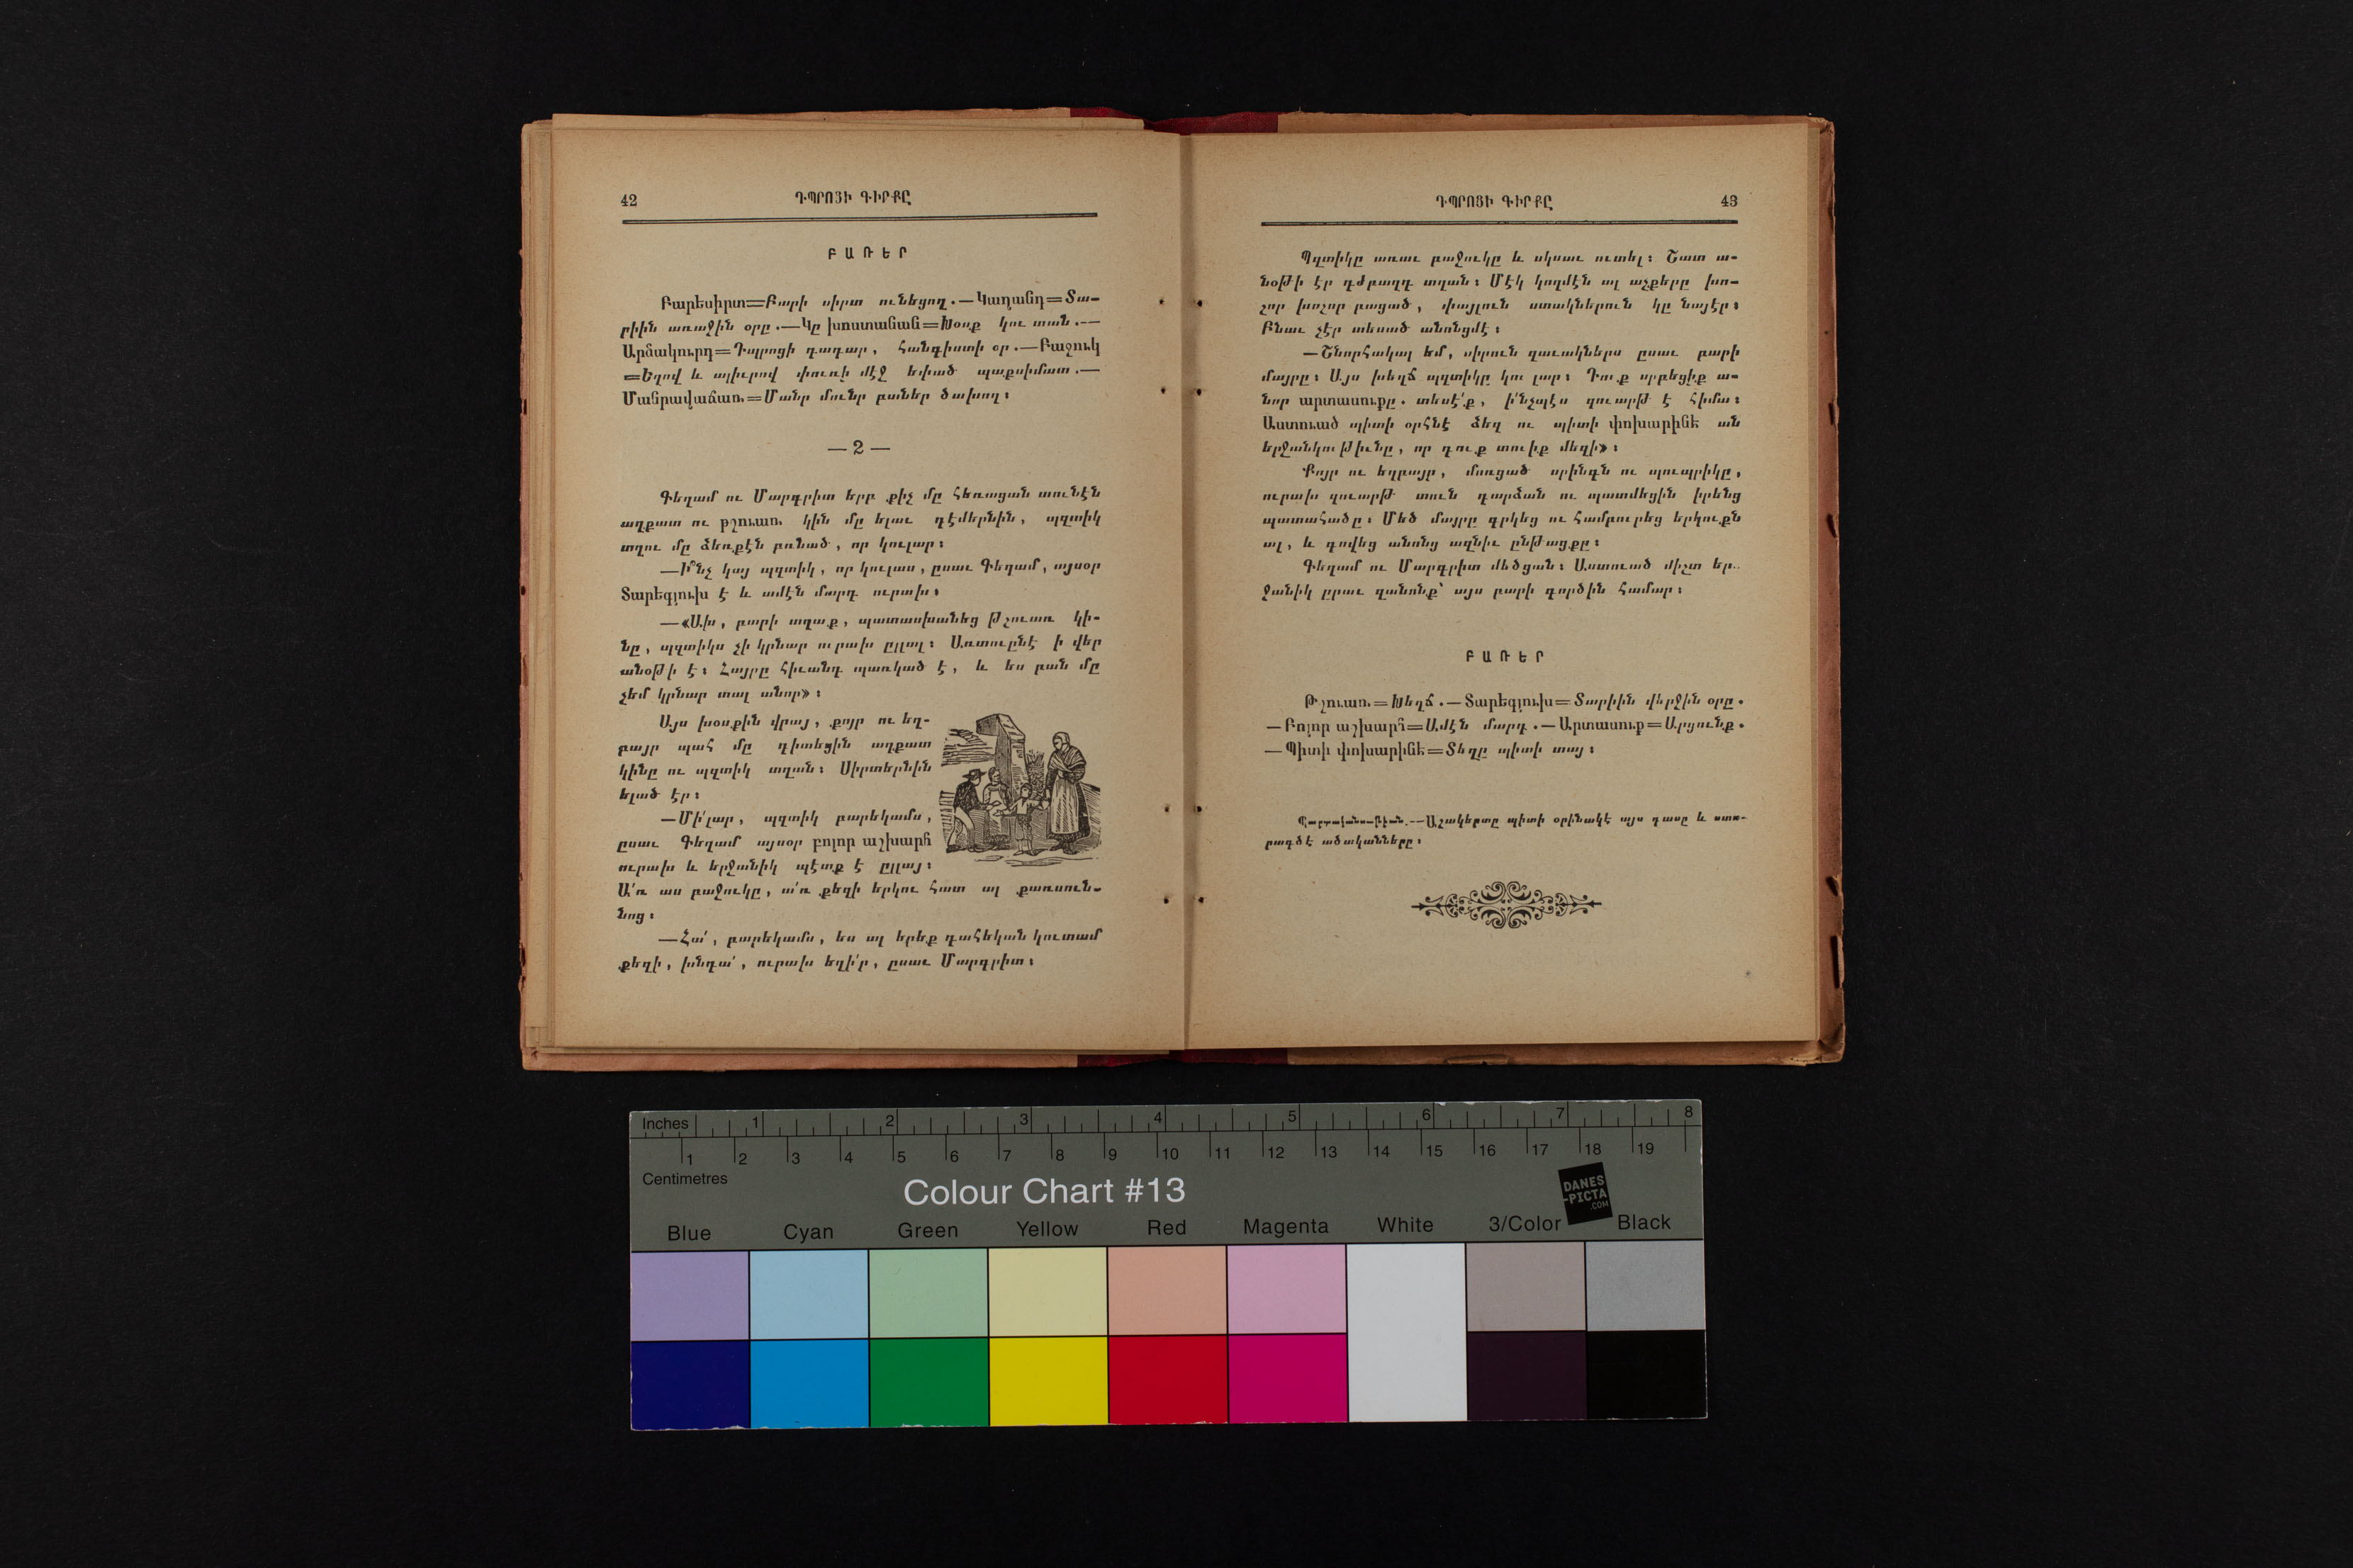 42
ԴՊՐՈՑԻ ԳԻՐՔԸ
ԲԱՌԵՐ
Բարեսիրտ=Բարի սիրտ ունեցող.—Կաղանդ=Տա-
րիին առաջին օրը.—Կը խոստանան=Խօսք կու տան.—
Արձակուրդ=Դպրոցի դադար, հանգիստի օր.—Բաչուկ
=Եղով և ալիւրով փուռի մէջ եփած պաքսիմատ.—
Մանրավաճառ=Մանր մունր բաներ ծախող։
—2—
Գեղամ ու Մարգրիտ երբ քիչ մը հեռացան տունէն
աղքատ ու թշուառ կին մը ելաւ դէմերնին, պզտիկ
տղու մը ձեռքէն բռնած, որ կուլար։
—Ի՞նչ կայ պզտիկ, որ կուլաս, ըսաւ Գեղամ, այսօր
Տարեգլուխ է և ամէն մարդ ուրախ։
—«Ախ, բարի տղաք, պատասխանեց թշուառ կի-
նը, պզտիկս չի կրնար ուրախ ըլլալ։ Առտուընէ ի վեր
անօթի է։ Հայրը հիւանդ պառկած է, և ես բան մը
չեմ կրնար տալ անոր»։
Այս խօսքին վրայ, քոյր ու եղ-
բայր պահ մը դիտեցին աղքատ
կինը ու պզտիկ տղան։ Սիրտերնին
ելած էր։
—Մի՛լար, պզտիկ բարեկամս,
ըսաւ Գեղամ այսօր բոլոր աշխարհ
ուրախ և երջանիկ պէտք է ըլլայ։
Ա՛ռ աս բաջուկը, ա՛ռ քեզի երկու հատ ալ քառսուն-
նոց։
—Հա՛, բարեկամս, ես ալ երեք դահեկան կուտամ
քեզի, խնդա՛, ուրախ եղի՛ր, ըսաւ Մարգրիտ։
ԴՊՐՈՑԻ ԳԻՐՔԸ
43
Պզտիկը առաւ բաջուկը և սկսաւ ուտել։ Շատ ա-
նօթի էր դժբաղդ տղան։ Մէկ կողմէն ալ աչքերը խո-
շոր խոշոր բացած, փայլուն ստակներուն կը նայէր։
Բնաւ չէր տեսած անոնցմէ։
—Շնորհակալ եմ, սիրուն զաւակներս ըսաւ բարի
մայրը։ Այս խեղճ պզտիկը կու լար։ Դուք սրբեցիք ա-
նոր արտասուքը. տեսէ՛ք, ի՛նչպէս զուարթ է հիմա։
Աստուած պիտի օրհնէ ձեզ ու պիտի փոխարինե ան
երջանկութիւնը, որ դուք տուիք մեզի»։
Քոյր ու եղբայր, մոռցած սրինգն ու պուպրիկը,
ուրախ զուարթ տուն դարձան ու պատմեցին իրենց
պատահածը։ Մեծ մայրը գրկեց ու համբուրեց երկուքն
ալ, և գովեց անոնց ազնիւ ընթացքը։
Գեղամ ու Մարգրիտ մեծցան։ Աստուած միշտ եր-
ջանիկ ըրաւ զանոնք՝ այս բարի գործին համար։
ԲԱՌԵՐ
Թշուառ=Խեղճ.—Տարեգլուխ=Տարիին վերջին օրը.
—Բոլոր աշխարհ=Ամէն մարդ.—Արտասուք=Արցունք.
—Պիտի փոխարինե=Տեղը պիտի տայ։
Պարտականութիւն.—Աշակերտը պիտի օրինակէ այս դասը և ստո-
րագծէ ածականները։
Inches 1 2 3 4 5 6 7 8
1 2 3 4 5 6 7 8 9 10 11 12 13 14 15 16 17 18 19
Centimetres
Colour Chart #13
DANES
-PICTA
.COM
Blue Cyan Green Yellow Red Magenta White 3/Color Black